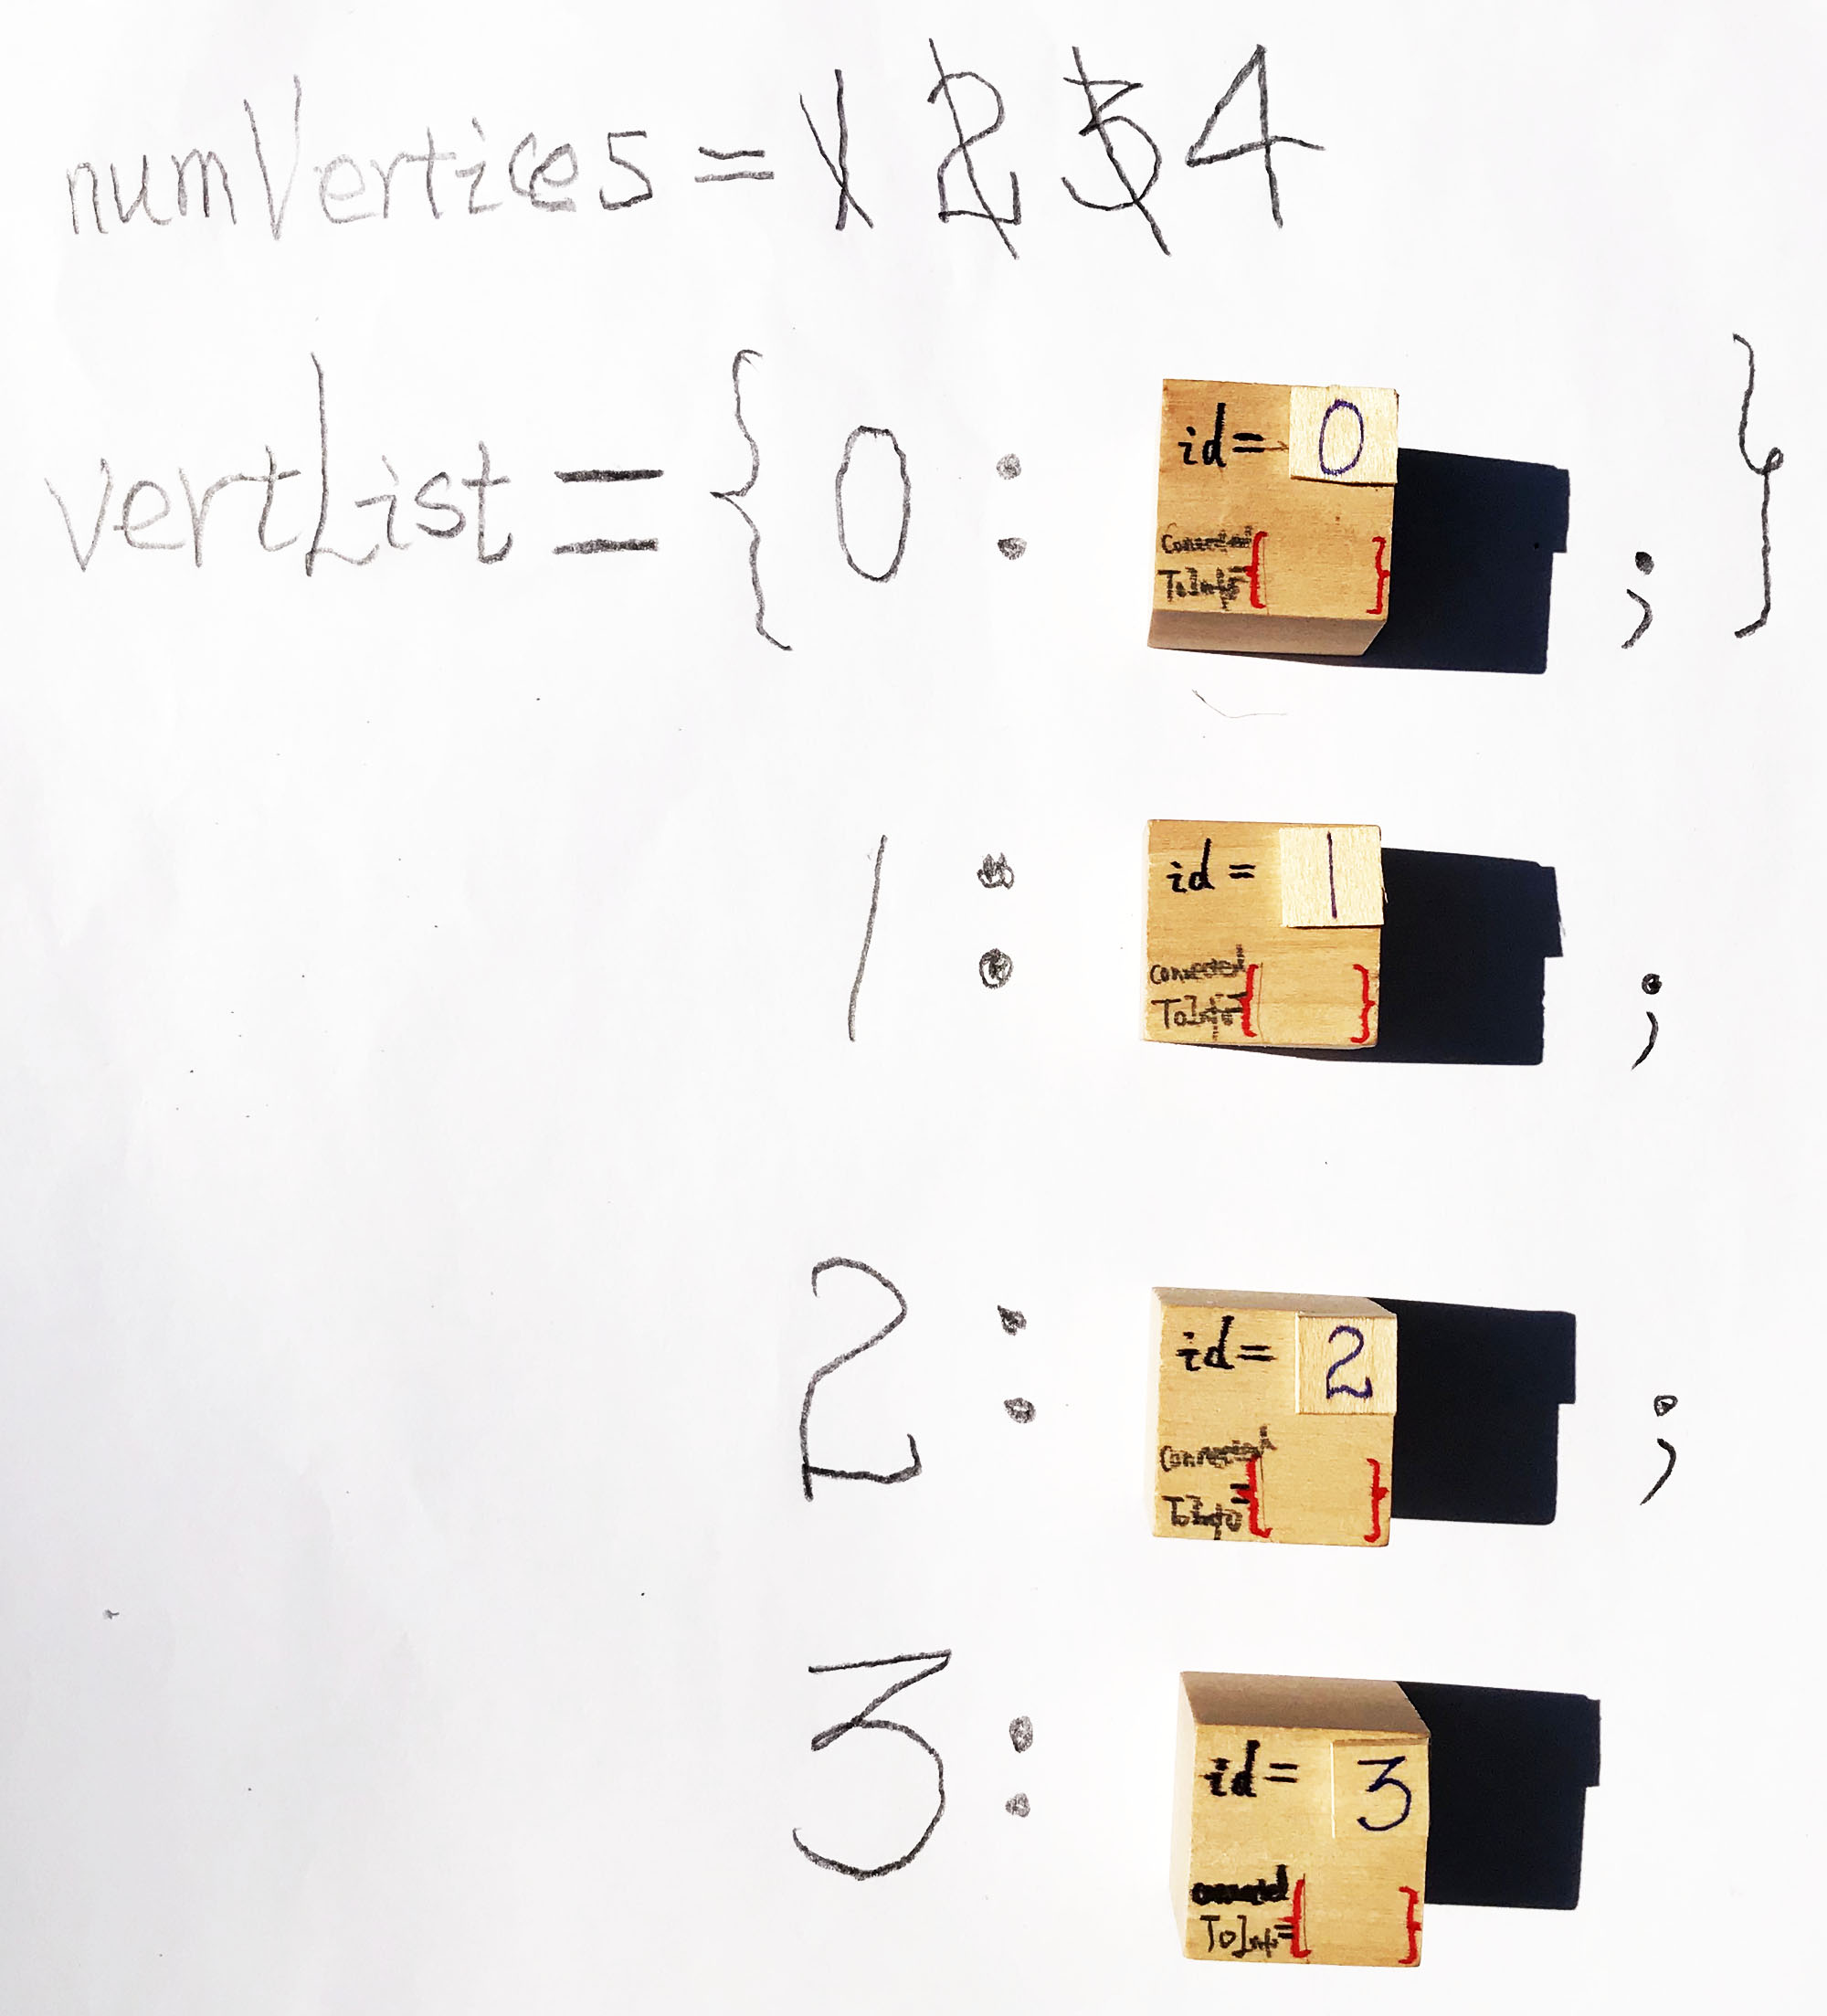 numVertices = 1 2 3 4
vertList = { 0 : id = 0 ; }
Connected
ToInfo= { }
1 : id = 1 ;
connected
ToInfo= { }
2 : id = 2 ;
Connected
ToInfo= { }
3 : id = 3
connected
ToInfo= { }